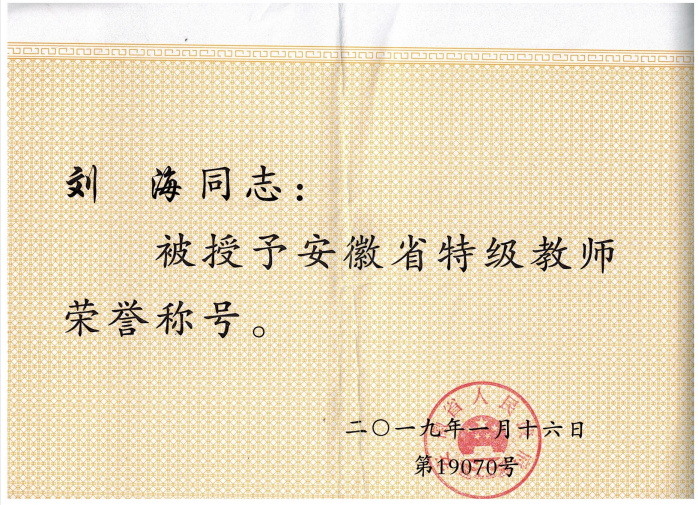 刘 海同志：
被授予安徽省特级教师
荣誉称号。
二〇一九年一月十六日
第19070号
安徽省人民政府